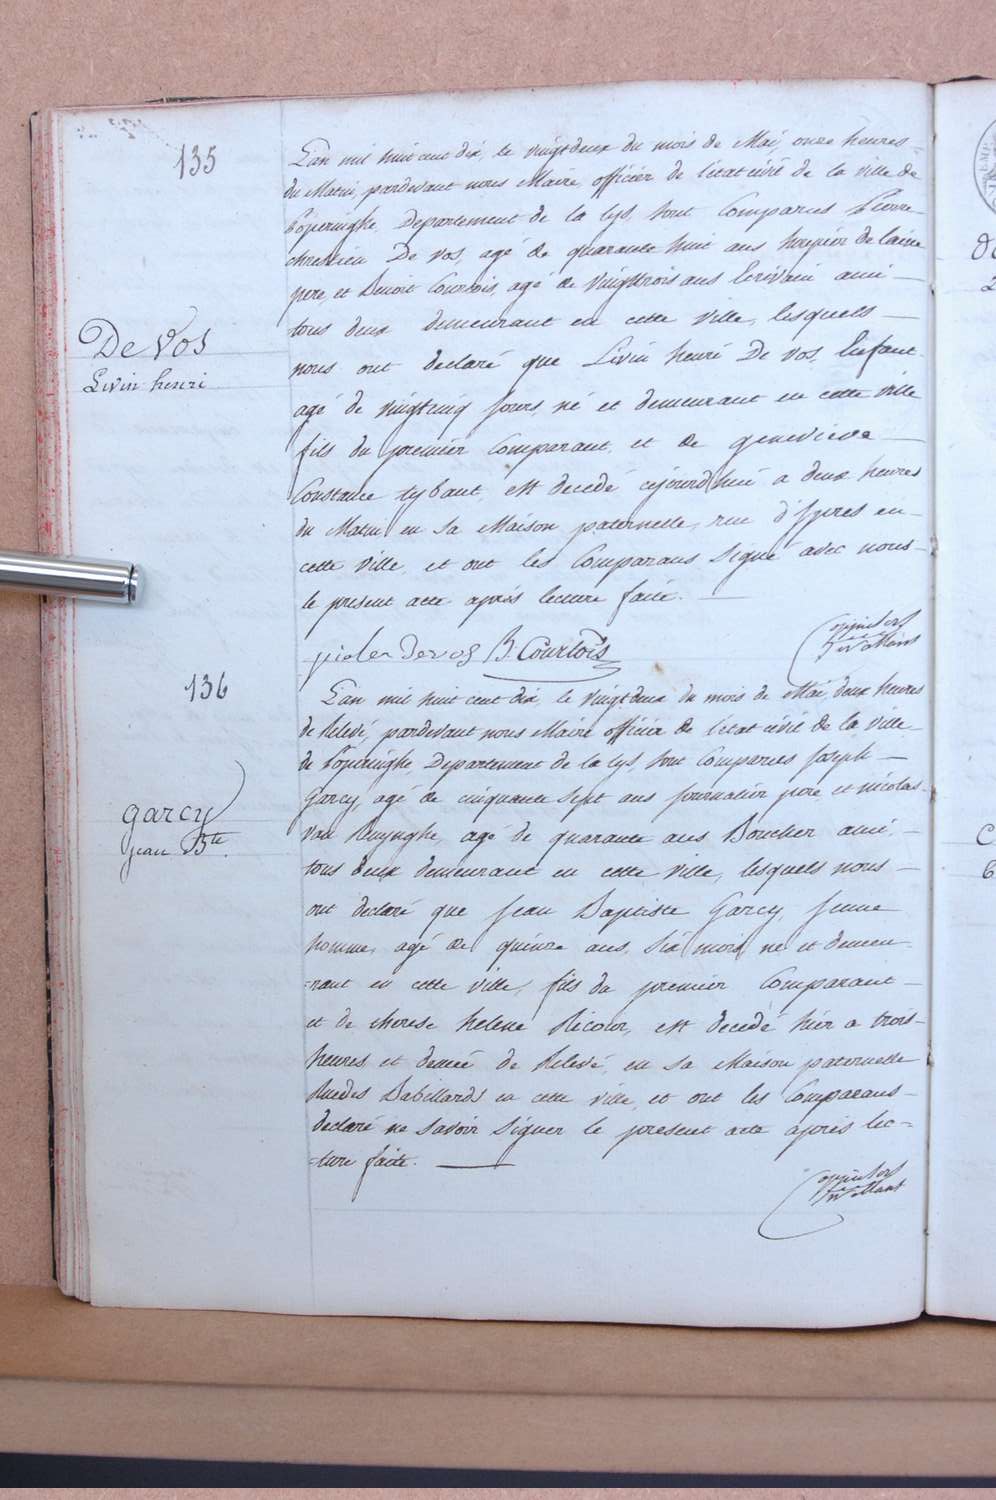 135
De Vos
Livin henri
L'an mil huit cent dix, le vingtdeux du mois de Mai, onze heures
du Matin, pardevant nous Maire, officier de l'état civil de la ville de
Poperinghe, Departement de la Lys, sont Comparus Pierre
chretien De Vos, agé de quarante huit ans de laine
pere, et Benoit Courtois, agé de vingttrois ans Ecrivain ami
tous deux demeurant en cette Ville, lesquels
nous ont declaré que Livin henri De Vos, Enfant
agé de vingtcinq jours, né et demeurant en cette ville
fils du premier Comparant, et de genevieve
Constance tybaut, est decedé cejourd'hui a deux heures
du Matin en sa Maison paternelle, rue d'Ypres en
cette ville, et ont les Comparans Signé avec nous
le present acte après lecture faite.
devos B. Courtois
136
garcy
jean Bte.
L'an mil huit cent dix, le vingtdeux du mois de Mai, deux heures
de Relevé, pardevant nous Maire officier de l'état civil de la Ville
de Poperinghe, Departement de la Lys, sont Comparus Joseph
Garcy, agé de cinquante sept ans journalier pere, et nicolas
Van Ruynghe, agé de quarante ans Boucher ami,
tous deux demeurant en cette ville, lesquels nous
ont declaré que Jean Baptiste Garcy, Jeune
homme, agé de quinze ans, Six mois, né et demeu-
-rant en cette ville, fils du premier Comparant
et de therese helene Ricour, est decedé hier a trois
heures et demie de Relevé, en sa Maison paternelle
Ruedes Babillards en cette ville, et ont les Comparans
declaré ne savoir Signer le present acte après lec-
-ture faite.